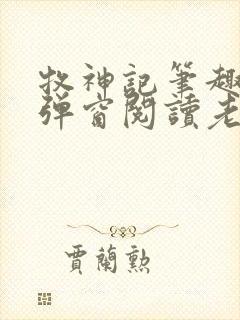 牧神記筆趣
弹窗閱讀老
賈蘭勲